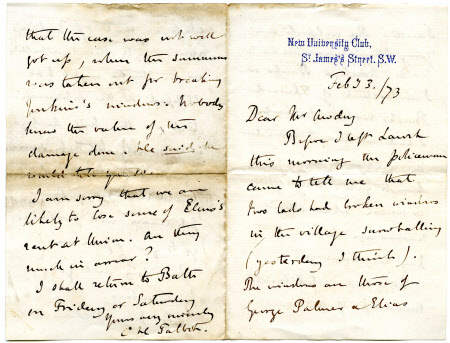 New University Club,
St James's Street. S.W.
Feb 23./73
Dear Mr Awdry
Before I left Lacock
this morning the policeman
came to tell me that
two lads had broken windows
in the village snowballing
(yesterday I think).
The windows are those of
George Palmer & Elias
that the case was not well
got up, when the summons
was taken out for breaking
Jenkins's windows. Nobody
knew the value of the
damage done. He said he
would tell you so.
I am sorry that we are
likely to lose some of Elms's
rent at Union. Are they
much in arrear?
I shall return to Bath
on Friday or Saturday
Yours very sincerely
C H Talbot.